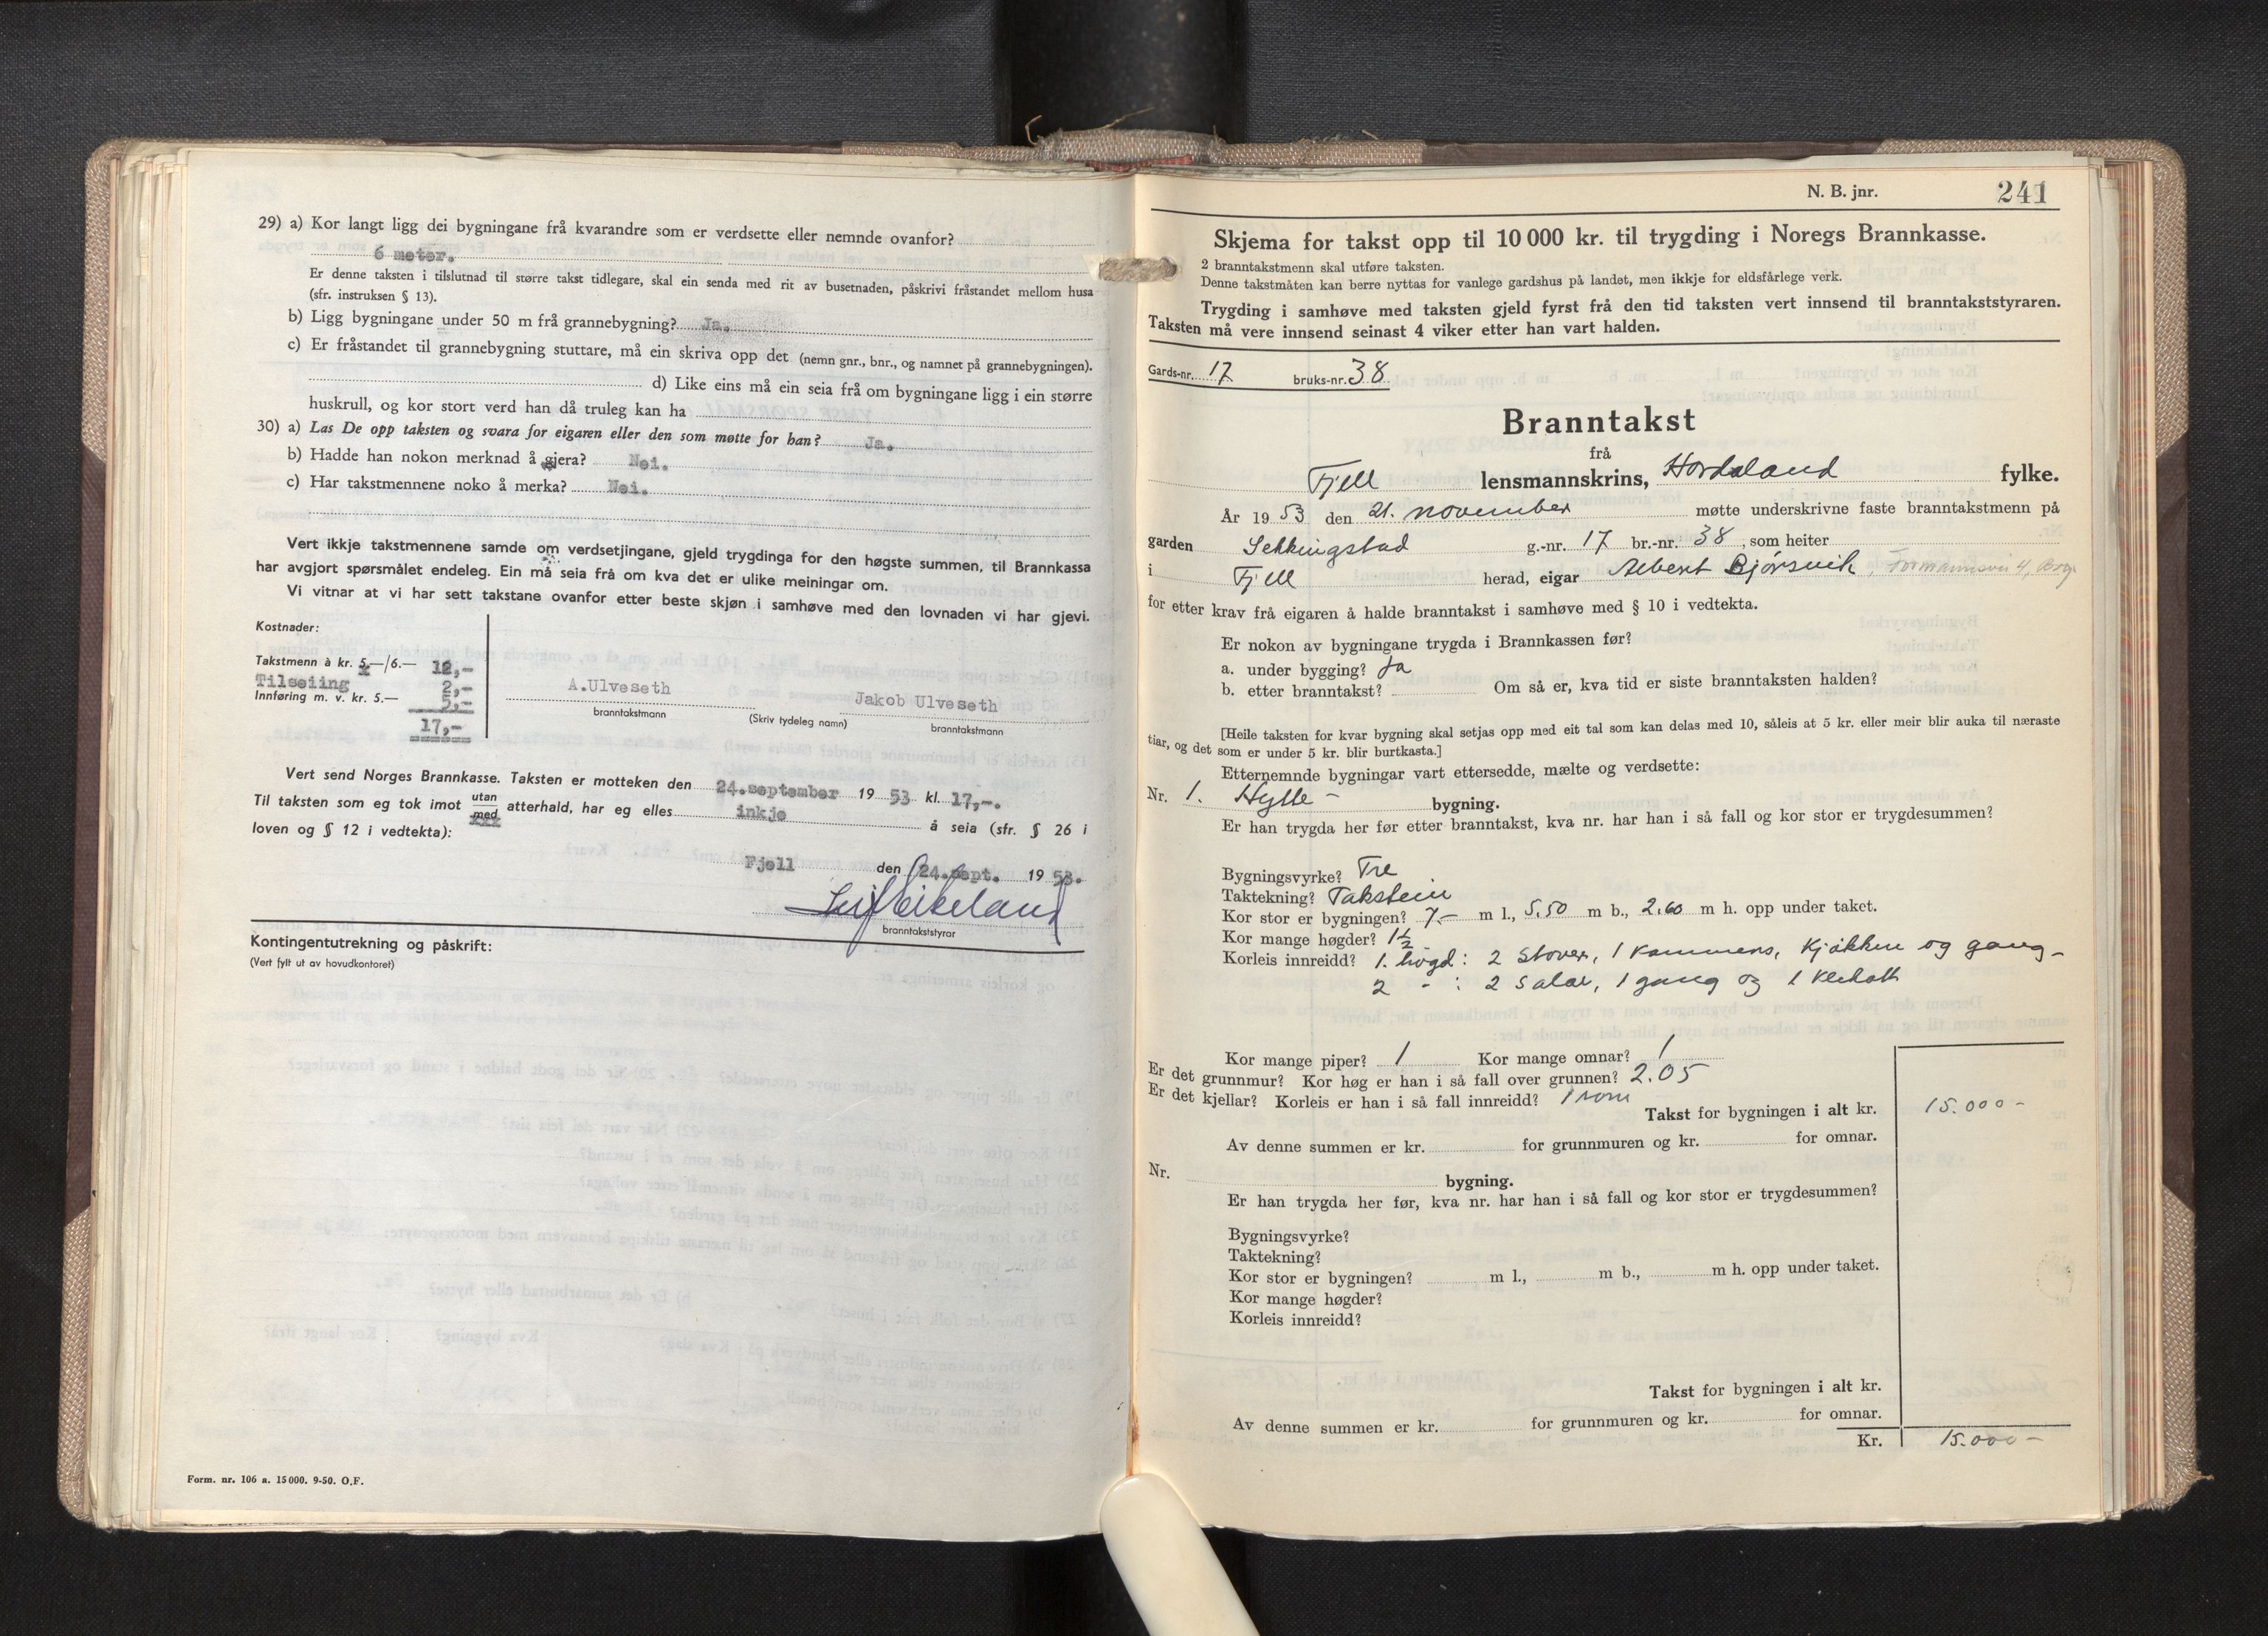 29) a) Kor langt ligg dei bygningane frå kvarandre som er verdsette eller nemnde ovanfor?
6 meter.
Er denne taksten i tilslutnad til større takst tidlegare, skal ein senda med rit av busetnaden, påskrivi fråstandet mellom husa
(sfr. instruksen § 13).
b) Ligg bygningane under 50 m frå grannebygning? Ja.
c) Er fråstandet til grannebygning stuttare, må ein skriva opp det (nemn gnr., bnr., og namnet på grannebygningen).
d) Like eins må ein seia frå om bygningane ligg i ein større
huskrull, og kor stort verd han då truleg kan ha
30) a) Las De opp taksten og svara for eigaren eller den som møtte for han? Ja.
b) Hadde han nokon merknad å gjera? Nei.
c) Har takstmennene noko å merka? Nei.
Vert ikkje takstmennene samde om verdsetjingane, gjeld trygdinga for den høgste summen, til Brannkassa
har avgjort spørsmålet endeleg. Ein må seia frå om kva det er ulike meiningar om.
Vi vitnar at vi har sett takstane ovanfor etter beste skjøn i samhøve med den lovnaden vi har gjevi.
Kostnader:
Takstmenn à kr. 5.—/6.— 12,-
Tilseiing 2,-
Innføring m. v. kr. 5.— 5,-
17,-
A.Ulveseth
Jakob Ulveseth
branntakstmann
(Skriv tydeleg namn)
branntakstmann
Vert send Norges Brannkasse. Taksten er motteken den 24.september 19 53 kl. 17,-.
Til taksten som eg tok imot utan med atterhald, har eg elles inkje å seia (sfr. § 26 i
loven og § 12 i vedtekta):
Fjell den 24.sept. 19 53.
Leif Eikeland
branntakststyrar
Kontingentutrekning og påskrift:
(Vert fylt ut av hovudkontoret)
Form. nr. 106 a. 15000. 9-50. O.F.
N. B. jnr. 241
Skjema for takst opp til 10 000 kr. til trygding i Noregs Brannkasse.
2 branntakstmenn skal utføre taksten.
Denne takstmåten kan berre nyttas for vanlege gardshus på landet, men ikkje for eldsfårlege verk.
Trygding i samhøve med taksten gjeld fyrst frå den tid taksten vert innsend til branntakststyraren.
Taksten må vere innsend seinast 4 viker etter han vart halden.
Gards-nr. 17 bruks-nr. 38
Branntakst
frå
Fjell lensmannskrins, Hordaland fylke.
År 19 53 den 21. november møtte underskrivne faste branntakstmenn på
garden Sekkingstad g.-nr. 17 br.-nr. 38, som heiter
i Fjell herad, eigar Albert Bjørsvik, Formannsvei 4, Brg.
for etter krav frå eigaren å halde branntakst i samhøve med § 10 i vedtekta.
Er nokon av bygningane trygda i Brannkassen før?
a. under bygging? Ja
b. etter branntakst? Om så er, kva tid er siste branntaksten halden?
[Heile taksten for kvar bygning skal setjas opp med eit tal som kan delas med 10, såleis at 5 kr. eller meir blir auka til næraste
tiar, og det som er under 5 kr. blir burtkasta.]
Etternemnde bygningar vart ettersedde, mælte og verdsette:
Nr. 1. Hytte - bygning.
Er han trygda her før etter branntakst, kva nr. har han i så fall og kor stor er trygdesummen?
Bygningsvyrke? Tre
Taktekning? Takstein
Kor stor er bygningen? 7.- m l., 5.50 m b., 2.60 m h. opp under taket.
Kor mange høgder? 1½
Korleis innreidd? 1. høgd: 2 stover, 1 kammers, kjøkken og gang-
2 - : 2 salar, 1 gang og 1 klekott
Kor mange piper? 1 Kor mange omnar? 1
Er det grunnmur? Kor høg er han i så fall over grunnen? 2.05
Er det kjellar? Korleis er han i så fall innreidd? 1 rom
Takst for bygningen i alt kr. 15.000-
Av denne summen er kr. for grunnmuren og kr. for omnar.
Nr. bygning.
Er han trygda her før, kva nr. har han i så fall og kor stor er trygdesummen?
Bygningsvyrke?
Taktekning?
Kor stor er bygningen? m l., m b., m h. opp under taket.
Kor mange høgder?
Korleis innreidd?
Takst for bygningen i alt kr.
Av denne summen er kr. for grunnmuren og kr. for omnar.
Kr. 15.000-